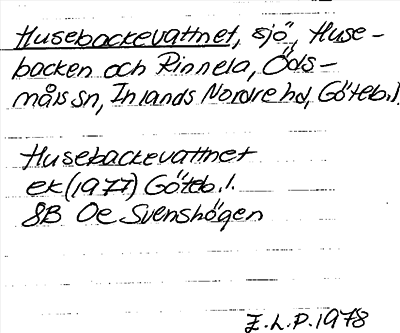 Husebackevattnet, sjö, Huse-
backen och Rinnela, Öds-
måls sn, Inlands Nordre hd, Göteb. l.
Husebackevattnet
ek (1977) Göteb. l.
8B Oe Svenshögen
E.L.P. 1978